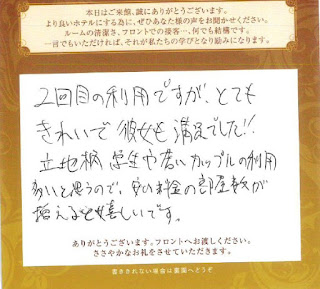 本日はご来館、誠にありがとうございます。
より良いホテルにする為に、ぜひあなた様の声をお聞かせください。
ルームの清潔さ、フロントでの接客…、何でも結構です。
一言でもいただければ、それが私たちの学びとなり励みになります。
2回目の利用ですが、とても
きれいで彼女も満足でした!!
立地柄 学生や若いカップルの利用
多いと思うので、安い料金の部屋数が
増えると嬉しいです。
ありがとうございます。フロントへお渡しください。
ささやかなお礼をさせていただきます。
書ききれない場合は裏面へどうぞ